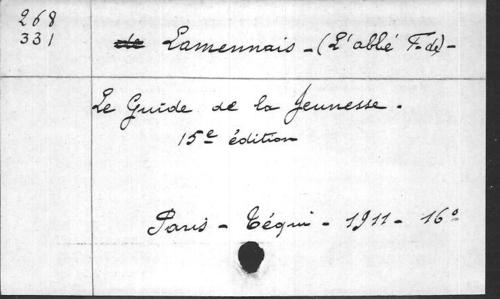 268
331
de Lamennais - (L'abbé F. de) -
Le Guide de la Jeunesse.
15e édition
Paris - Téqui - 1911 - 16°